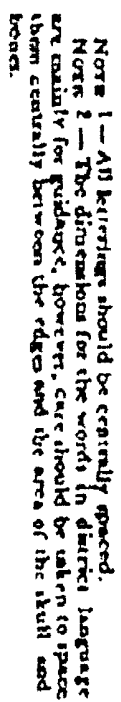 NOTE 1 — All letterings should be centrally spaced.
NOTE 2 — The dimensions for the words in district language
are mainly for guidance, however, care should be taken to space
them centrally between the edges and the area of the skull and
bones.